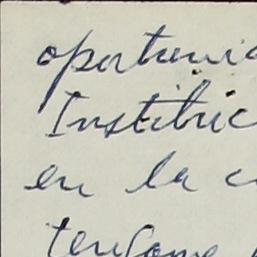 oportunid
Instituc
en la c
tengame